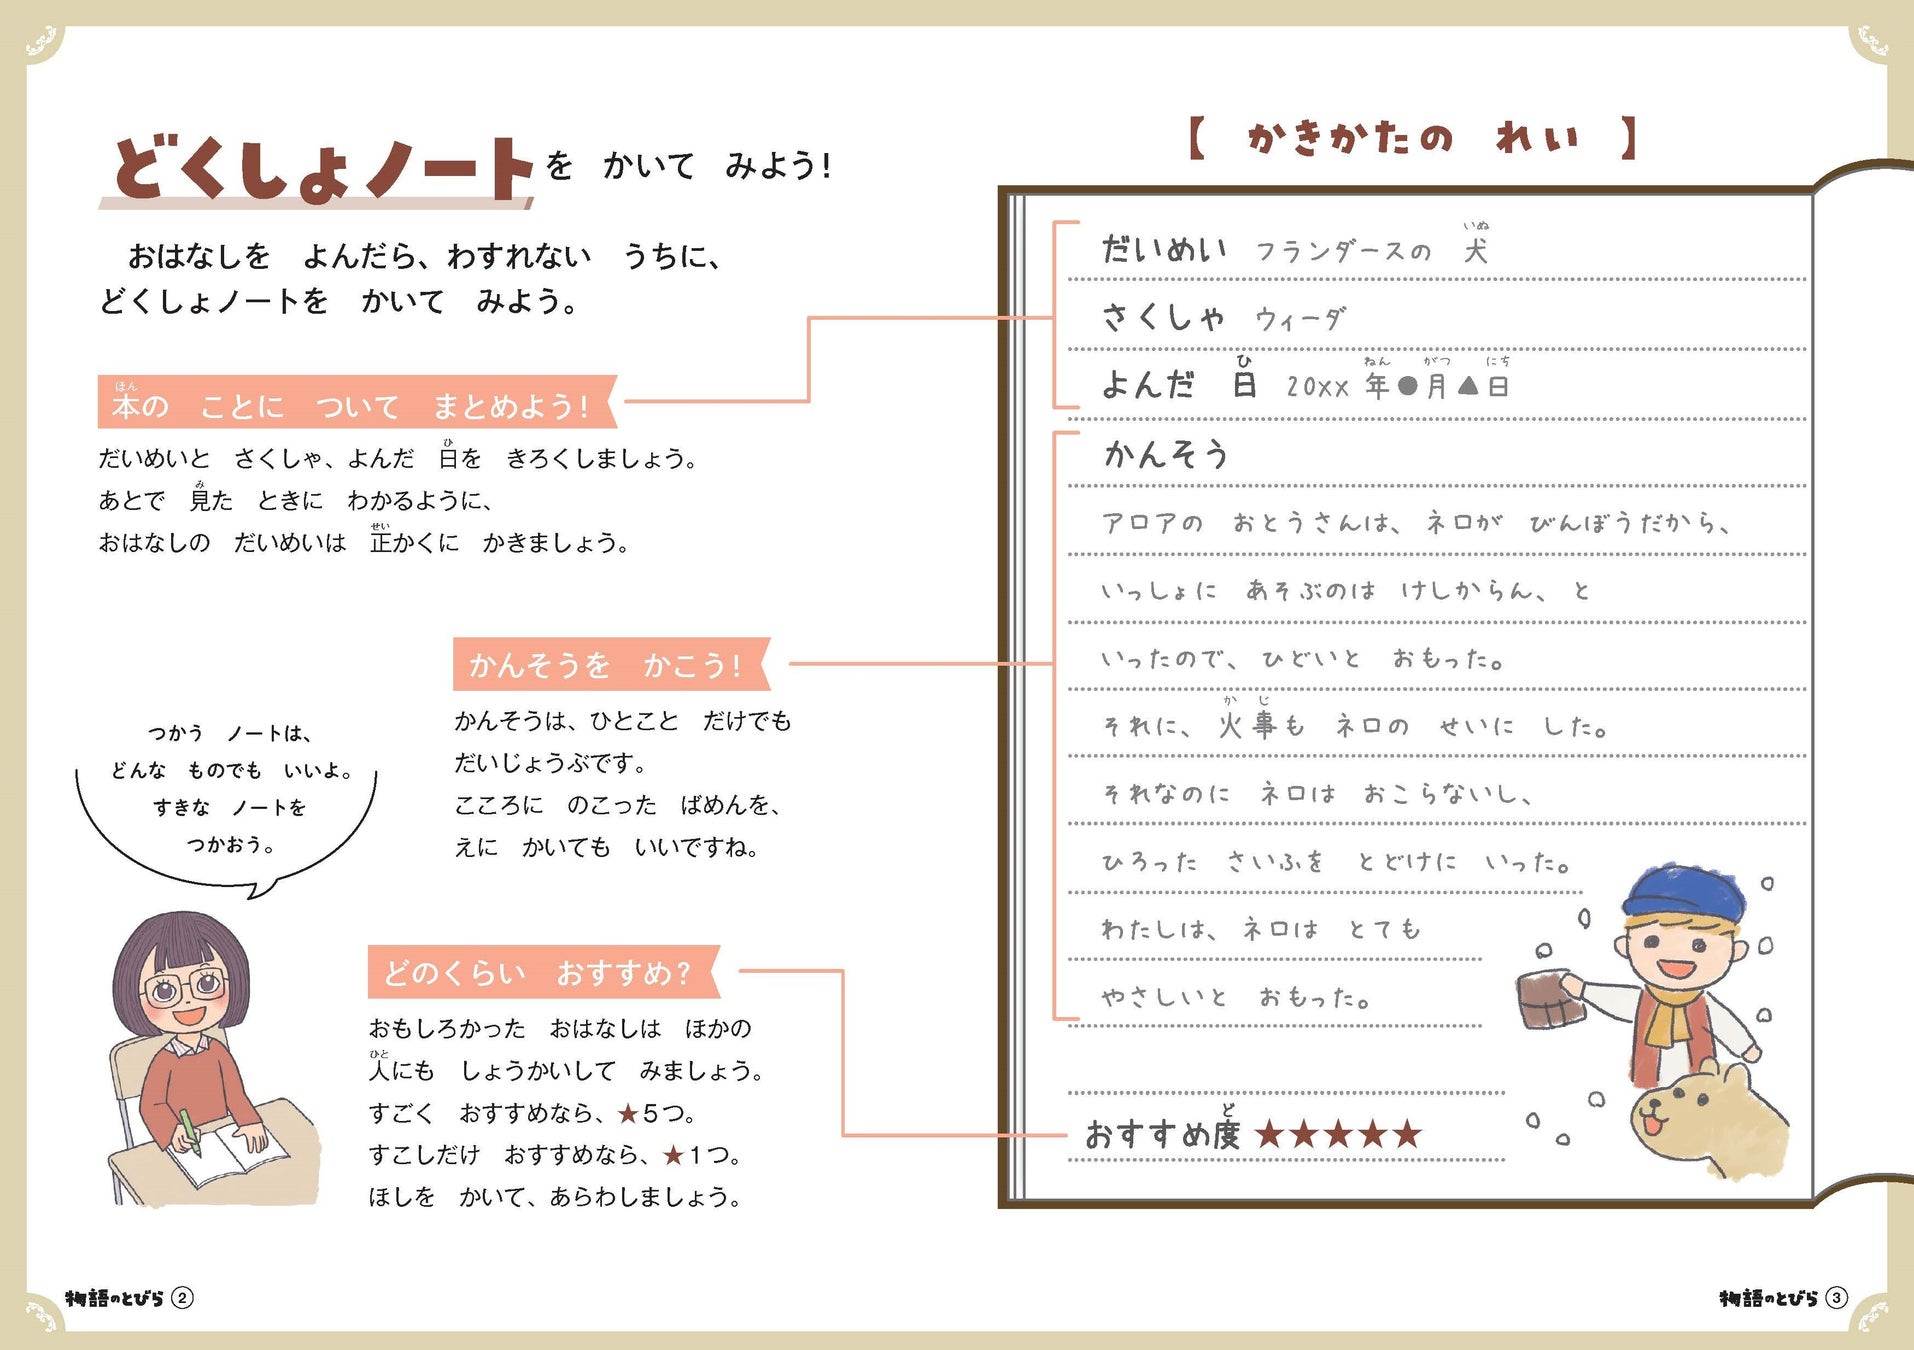 どくしょノートを　かいて　みよう！
　おはなしを　よんだら、わすれない　うちに、
どくしょノートを　かいて　みよう。
本の　ことに　ついて　まとめよう！
ほん
だいめいと　さくしゃ、よんだ　日を　きろくしましょう。
ひ
あとで　見た　ときに　わかるように、
み
おはなしの　だいめいは　正かくに　かきましょう。
せい
かんそうを　かこう！
かんそうは、ひとこと　だけでも
だいじょうぶです。
こころに　のこった　ばめんを、
えに　かいても　いいですね。
つかう　ノートは、
どんな　ものでも　いいよ。
すきな　ノートを
つかおう。
どのくらい　おすすめ？
おもしろかった　おはなしは　ほかの
人にも　しょうかいして　みましょう。
ひと
すごく　おすすめなら、★５つ。
すこしだけ　おすすめなら、★１つ。
ほしを　かいて、あらわしましょう。
物語のとびら ②
【　かきかたの　れい　】
だいめい　フランダースの　犬
いぬ
さくしゃ　ウィーダ
よんだ　日　20xx 年●月▲日
ひ　ねん　がつ　にち
かんそう
アロアの　おとうさんは、ネロが　びんぼうだから、
いっしょに　あそぶのは　けしからん、と
いったので、ひどいと　おもった。
それに、火事も　ネロの　せいに　した。
か　じ
それなのに　ネロは　おこらないし、
ひろった　さいふを　とどけに　いった。
わたしは、ネロは　とても
やさしいと　おもった。
おすすめ度 ★★★★★
ど
物語のとびら ③